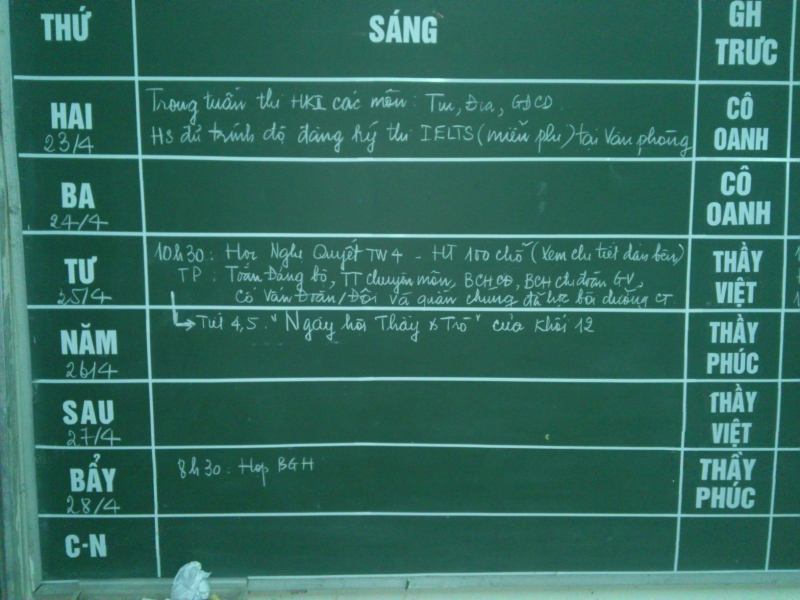 THỨ SÁNG GH TRỰC
HAI 23/4 CÔ OANH
Trong tuần thi HKII các môn: Tin, Địa, GDCD.
HS đủ trình độ đăng ký thi IELTS (miễn phí) tại Văn phòng
BA 24/4 CÔ OANH
TƯ 25/4 THẦY VIỆT
10h30: Học Nghị Quyết TW4 - HT 100 chỗ (Xem chi tiết dán bên)
TP: Toàn Đảng bộ, TT chuyên môn, BCHCĐ, BCH chi đoàn GV,
Cố Vấn Đoàn/Đội và quần chúng đã học bồi dưỡng CT
NĂM 26/4 THẦY PHÚC
Tiết 4,5: "Ngày hội Thầy & Trò" của Khối 12
SAU 27/4 THẦY VIỆT
BẨY 28/4 THẦY PHÚC
8h30: Họp BGH
C-N